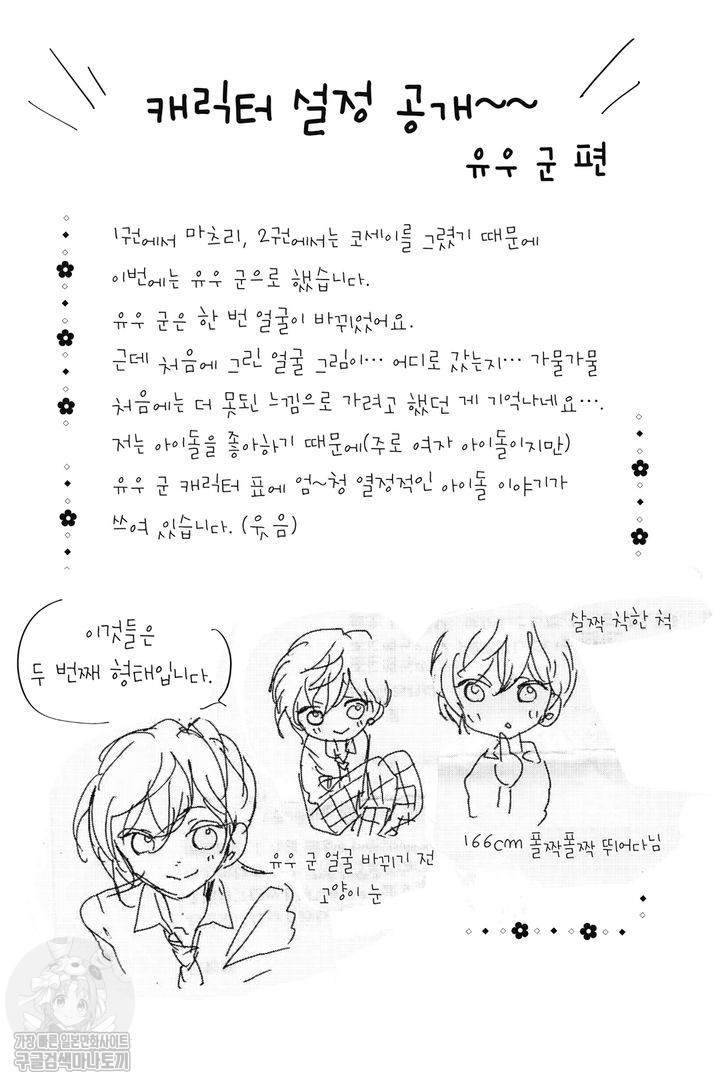 캐릭터 설정 공개~~
유우 군 편
1권에서 마츠리, 2권에서는 코세이를 그렸기 때문에
이번에는 유우 군으로 했습니다.
유우 군은 한 번 얼굴이 바뀌었어요.
근데 처음에 그린 얼굴 그림이… 어디로 갔는지… 가물가물
처음에는 더 못된 느낌으로 가려고 했던 게 기억나네요….
저는 아이돌을 좋아하기 때문에(주로 여자 아이돌이지만)
유우 군 캐릭터 표에 엄~청 열정적인 아이돌 이야기가
쓰여 있습니다. (웃음)
이것들은
두 번째 형태입니다.
살짝 착한 척
유우 군 얼굴 바뀌기 전
고양이 눈
166cm 폴짝폴짝 뛰어다님
가장 빠른 일본만화사이트
구글검색마나토끼